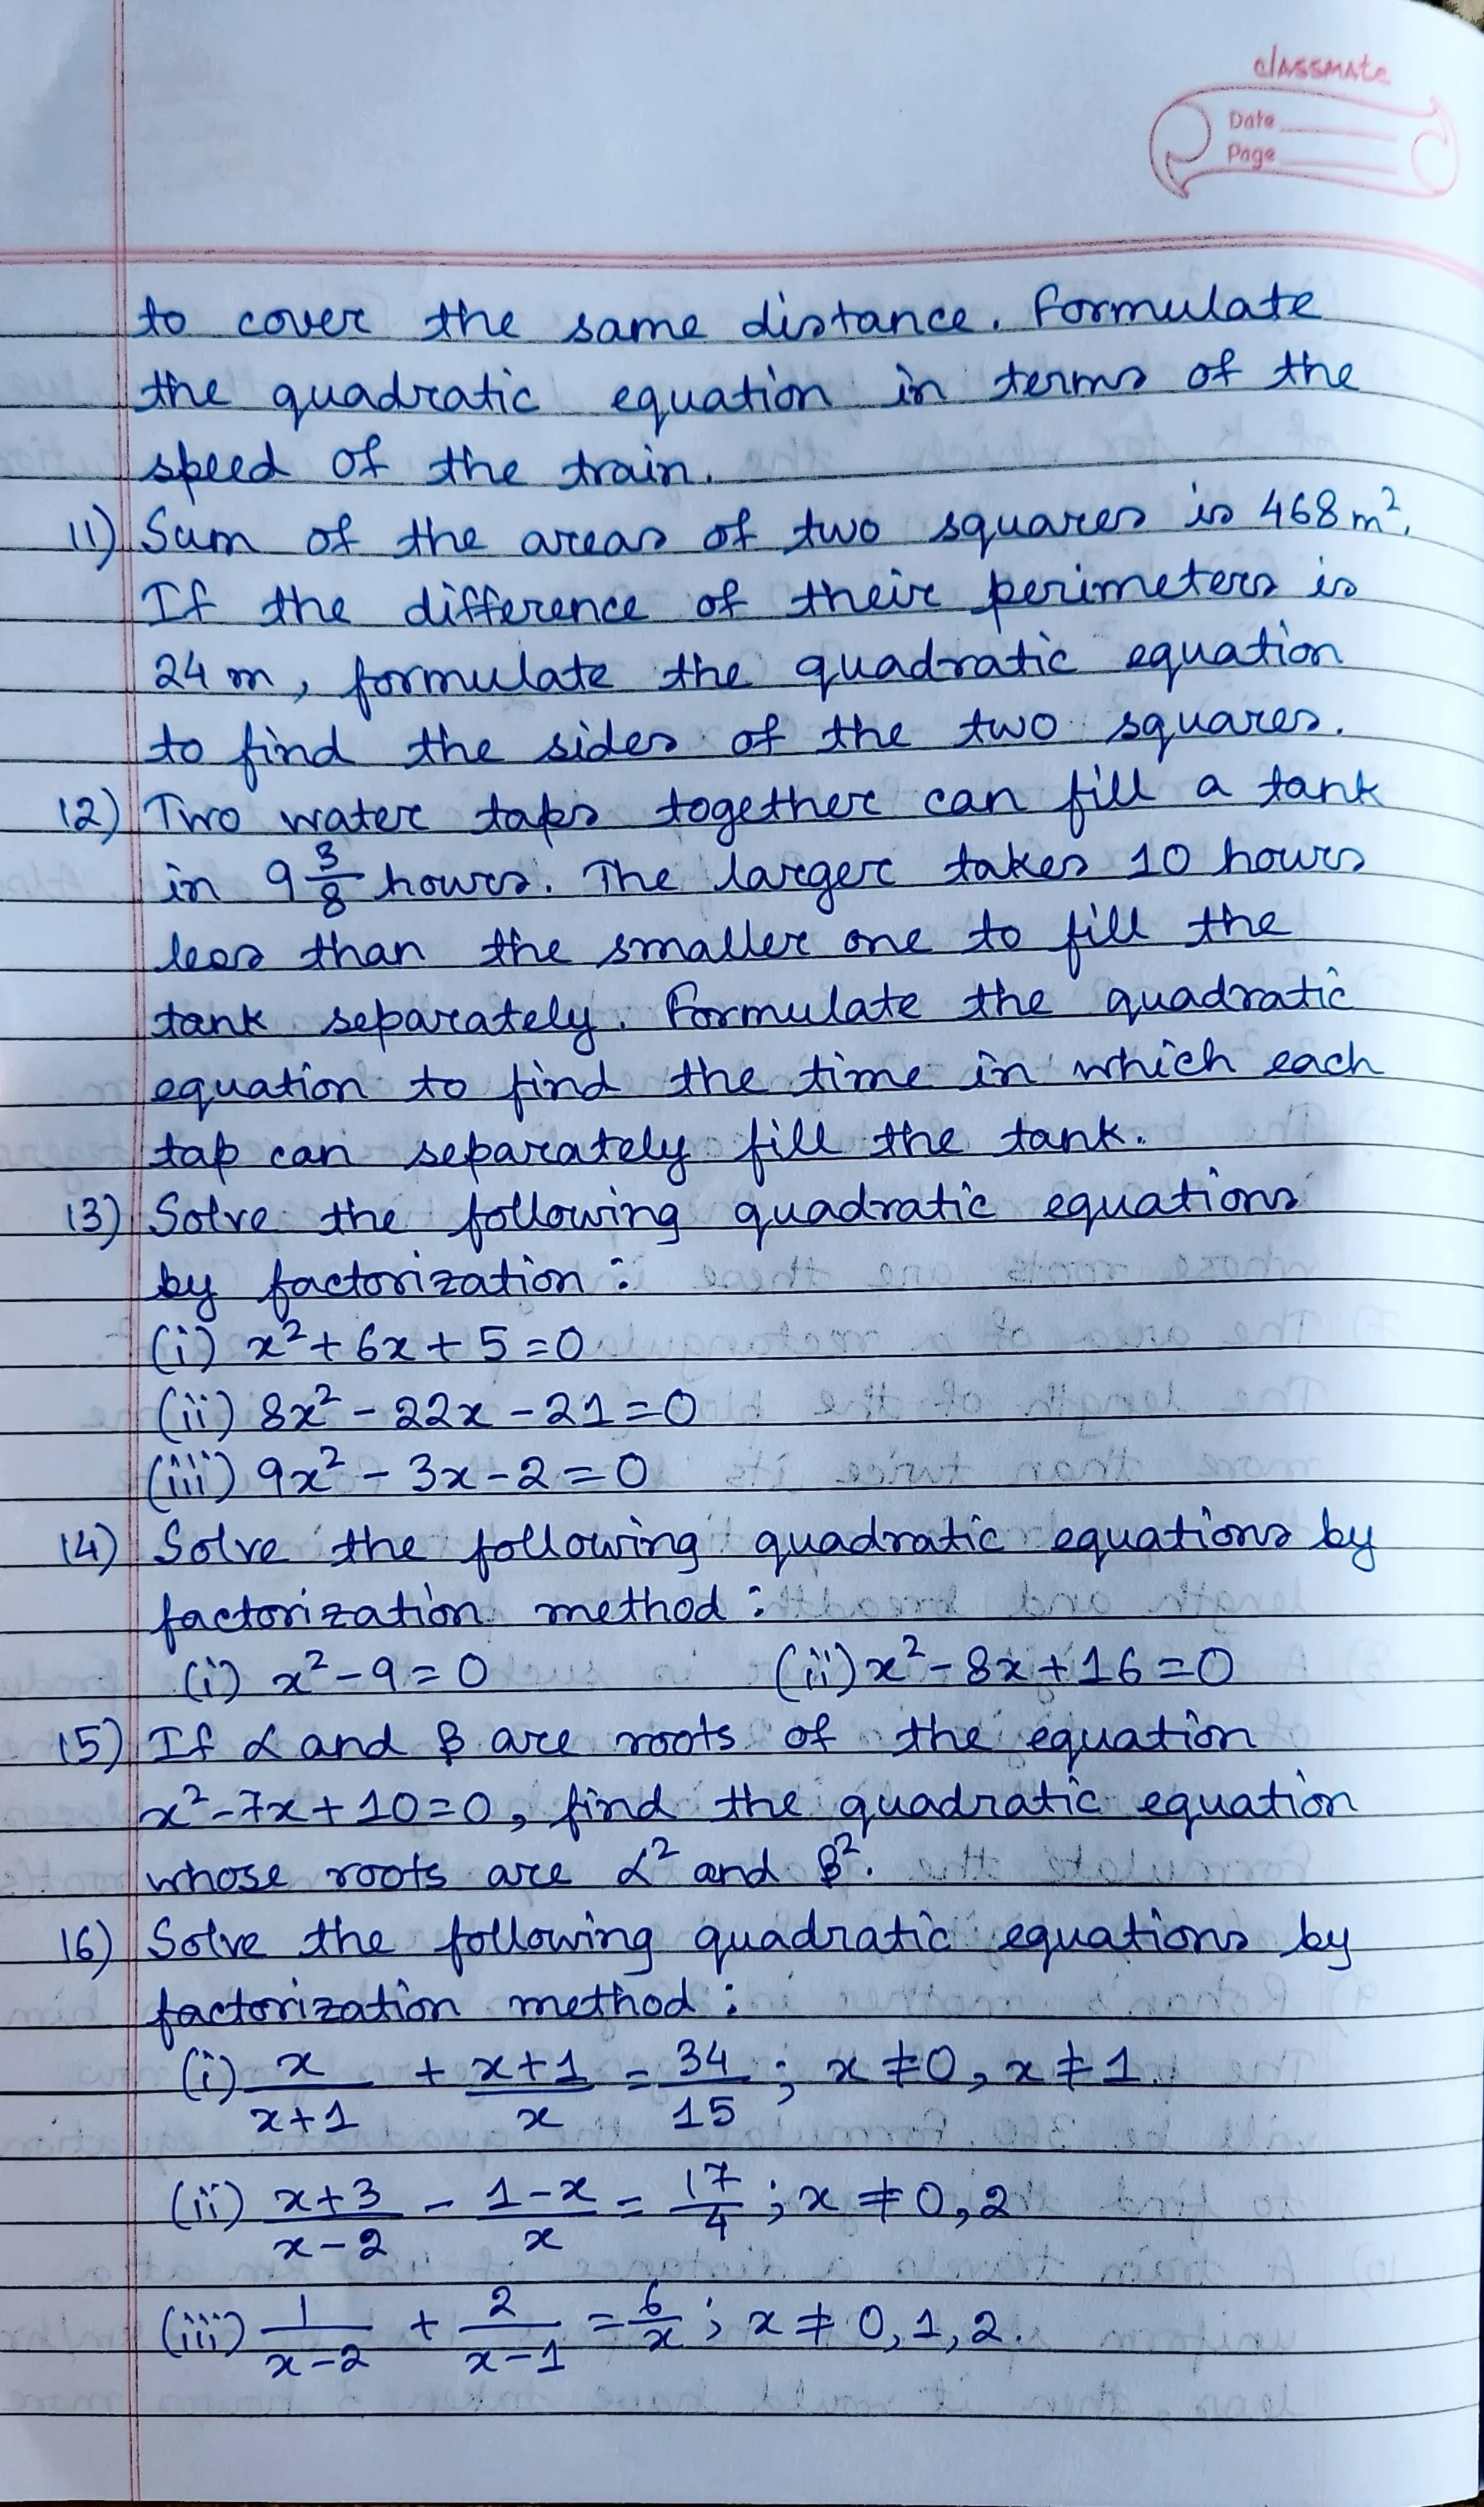 classmate
Date
Page
to cover the same distance. Formulate
the quadratic equation in terms of the
speed of the train.
11) Sum of the areas of two squares is 468 m².
If the difference of their perimeters is
24 m, formulate the quadratic equation
to find the sides of the two squares.
12) Two water taps together can fill a tank
in 9 3/8 hours. The larger takes 10 hours
less than the smaller one to fill the
tank separately. Formulate the quadratic
equation to find the time in which each
tap can separately fill the tank.
13) Solve the following quadratic equations
by factorization:
(i) x² + 6x + 5 = 0
(ii) 8x² - 22x - 21 = 0
(iii) 9x² - 3x - 2 = 0
14) Solve the following quadratic equations by
factorization method:
(i) x² - 9 = 0 (ii) x² - 8x + 16 = 0
15) If α and β are roots of the equation
x² - 7x + 10 = 0, find the quadratic equation
whose roots are α² and β².
16) Solve the following quadratic equations by
factorization method:
(i) x/(x+1) + (x+1)/x = 34/15 ; x ≠ 0, x ≠ 1.
(ii) (x+3)/(x-2) - (1-x)/x = 17/4 ; x ≠ 0, 2
(iii) 1/(x-2) + 2/(x-1) = 6/x ; x ≠ 0, 1, 2.